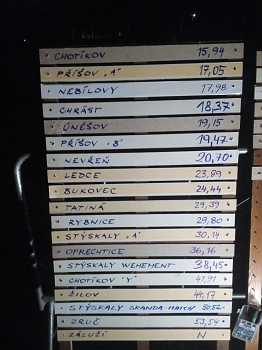 CHOTÍKOV 15,94
PŘÍŠOV "A" 17,05
NEBÍLOVY 17,98
CHRÁST 18,37
ÚNĚŠOV 19,15
PŘÍŠOV "B" 19,47
NEVŘEŇ 20,70
LEDCE 23,89
BUKOVEC 24,44
TATINÁ 29,39
RYBNICE 29,80
STÝSKALY "A" 30,14
DPRECHTICE 36,16
STÝSKALY WEHEMENT 38,45
CHOTÍKOV "Y" 41,91
ŽILOV 44,17
STÝSKALY SRANDA-MATCH 52,52
ZRUČ 53,54
ZÁLUŽÍ N